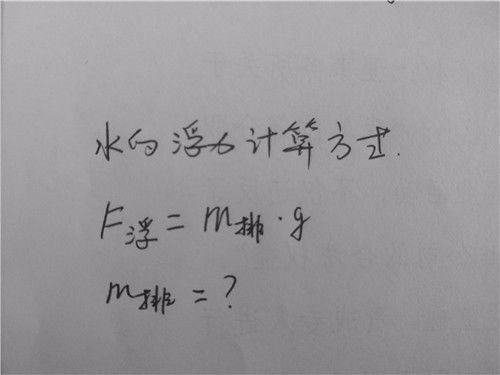 水的浮力计算方式.
F浮=m排·g
m排=?